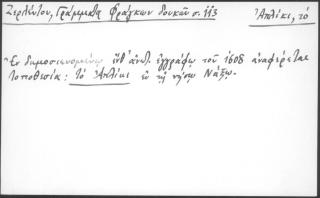 Ζερλέντου, Γράμματα Φράγκων δουκῶν σ. 113 Ἀπλίκι, τό
Ἐν δημοσιευομένῳ ὑπ' ἀνωτ. ἐγγράφῳ τοῦ 1608 ἀναφέρεται
τοποθεσία: τὸ Ἀπλίκι ἐν τῇ νήσῳ Νάξῳ.